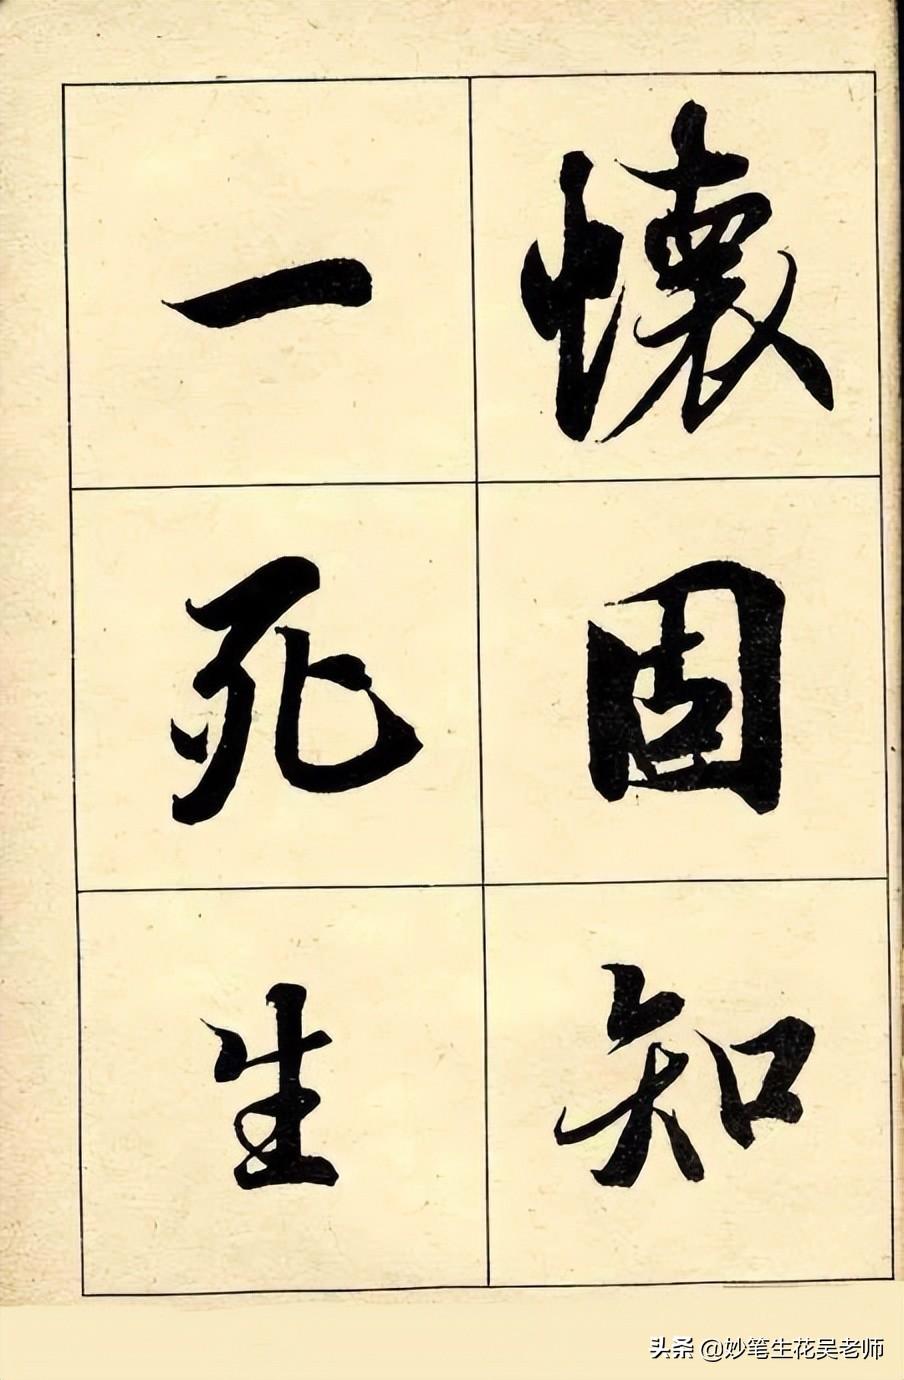 懷固知
一死生
头条 @妙笔生花吴老师